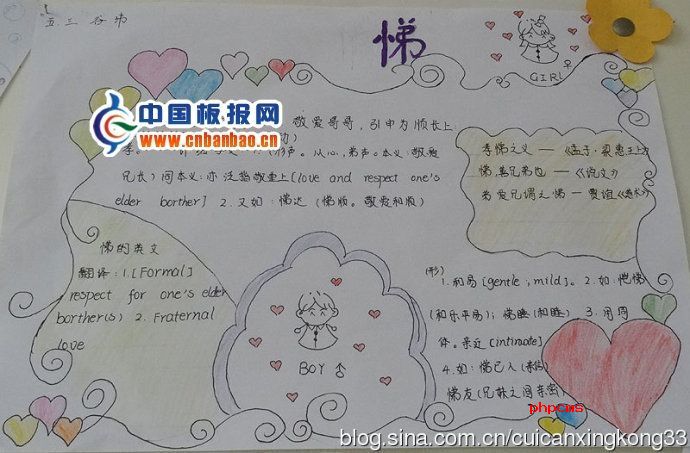 五.三 谷步
悌
GIRL ♀
中国板报网
www.cnbanbao.cn
敬爱哥哥,引申为顺长上
孝。
(形声。从心,弟声。本义:敬爱
兄长) 同本义:亦泛指敬重上[love and respect one's
elder borther] 2.又如:悌达(悌顺。敬爱和顺)
孝悌之义 — 《孟子·梁惠王上》
悌,善兄弟也 — 《说文》
弟爱兄谓之悌 — 贾谊
悌的英文
翻译:1.[Formal]
respect for one's elder
borther(s) 2. Fraternal
love
BOY ♂
(形)
1.和易[gentle;mild]。2.如:恺悌
(和乐平易);悌睦(和睦) 3.用同
体。亲近[intimate]
4.如:悌己人
悌友(兄弟之间亲密)
phpcms
blog.sina.com.cn/cuicanxingkong33